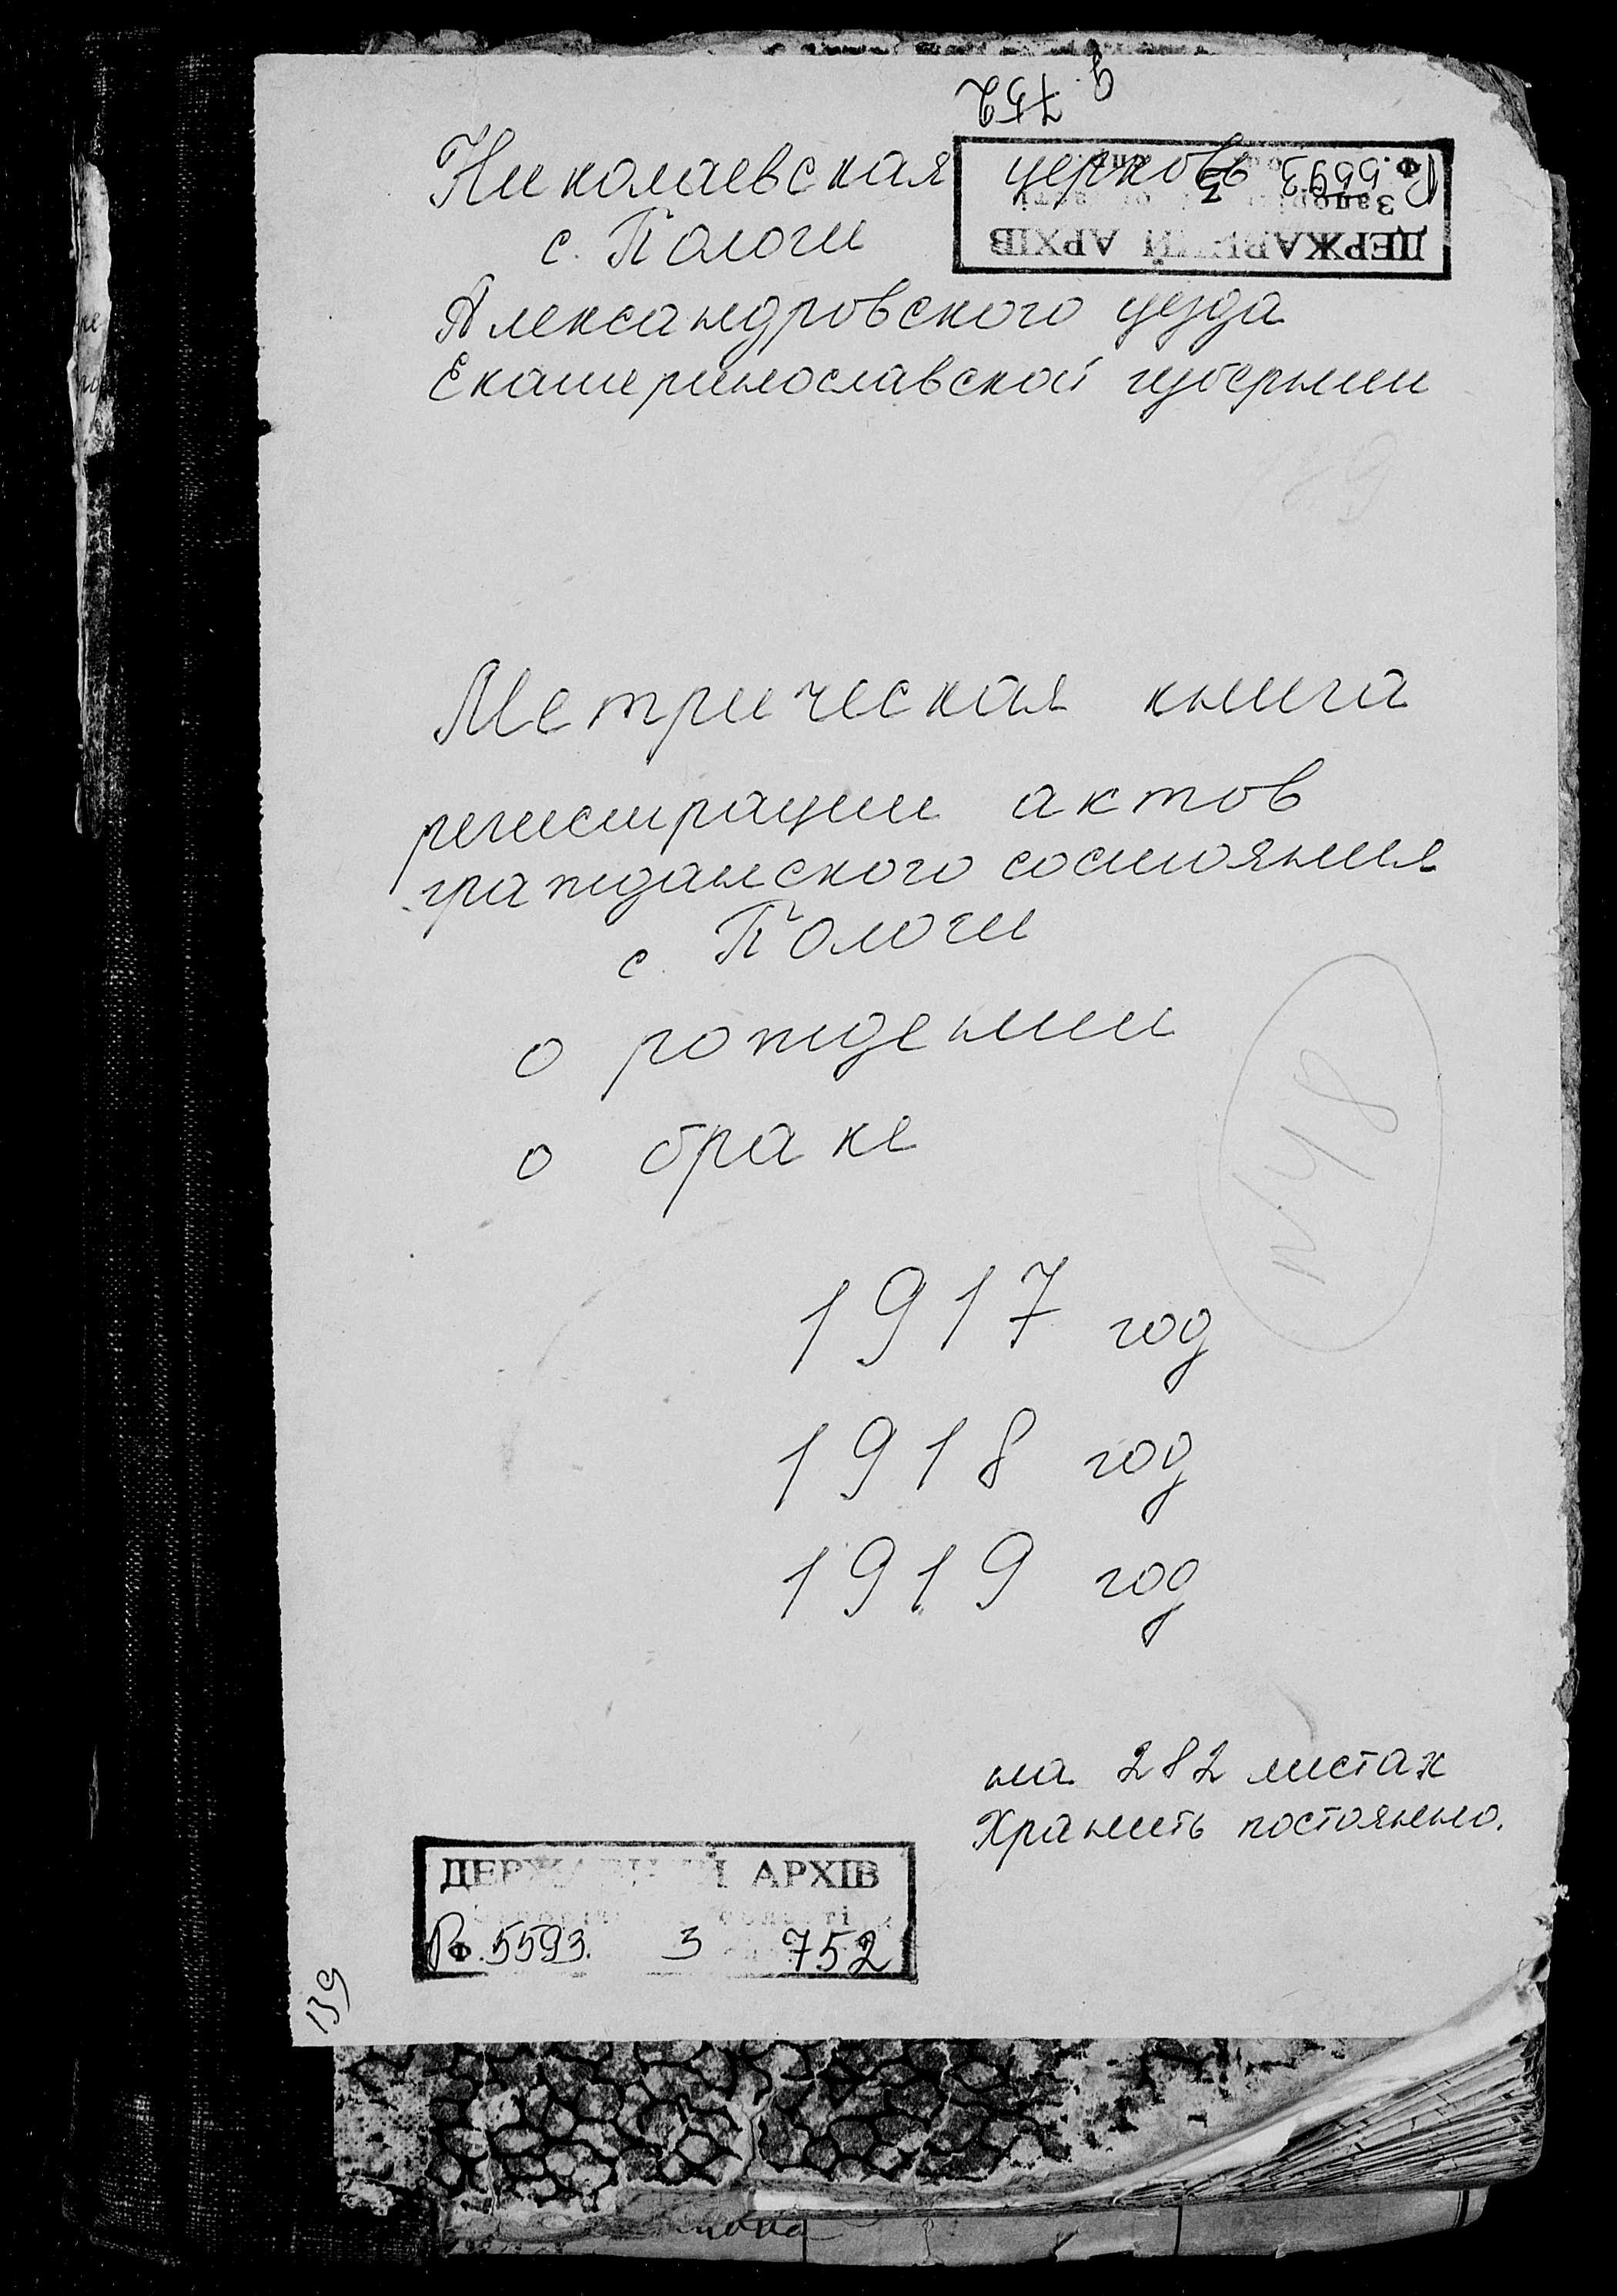 752
Николаевская церковь
Ф. Р 5593 3
ДЕРЖАВНИЙ АРХІВ
с. Пологи
Александровского уезда
Екатеринославской губернии
139
Метрическая книга
регистрации актов
гражданского состояния
с. Пологи
о рождении
о браке
N 48
1917 год
1918 год
1919 год
на 282 листах
Хранить постоянно.
ДЕРЖАВНИЙ АРХІВ
Рф. 5593. 3 752
139